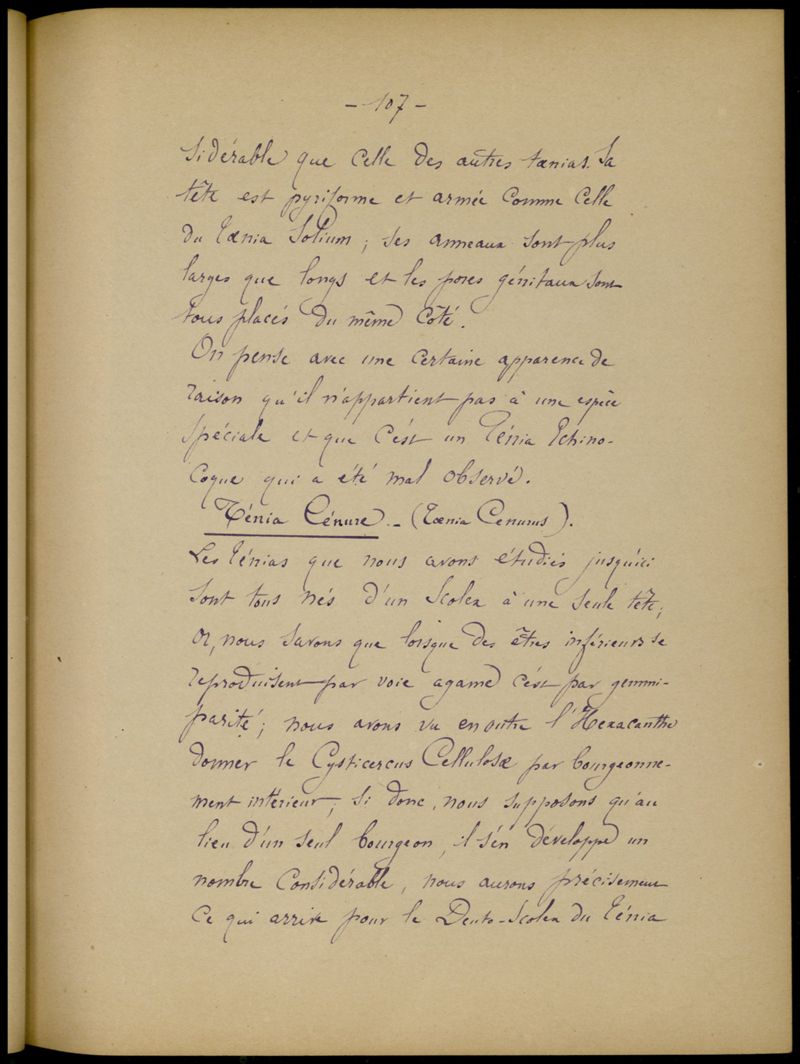 - 107 -
sidérable que celle des autres tænias. Sa
tête est pyriforme et armée comme celle
du Tænia Solium ; ses anneaux sont plus
larges que longs et les pores génitaux sont
tous placés du même côté.
On pense avec une certaine apparence de
raison qu'il n'appartient pas à une espèce
spéciale et que c'est un Ténia Echino-
coque qui a été mal observé.
Ténia Cénure. - (Tænia Cenurus).
Les Ténias que nous avons étudiés jusqu'ici
sont tous nés d'un Scolex à une seule tête ;
or, nous savons que lorsque des êtres inférieurs se
reproduisent par voie agame c'est par gemmi-
parité ; nous avons vu en outre l'Hexacanthe
donner le Cysticercus Cellulosæ par bourgeonne-
ment intérieur, si donc, nous supposons qu'au
lieu d'un seul bourgeon, il s'en développe un
nombre considérable, nous aurons précisement
ce qui arrive pour le Deuto-Scolex du Ténia